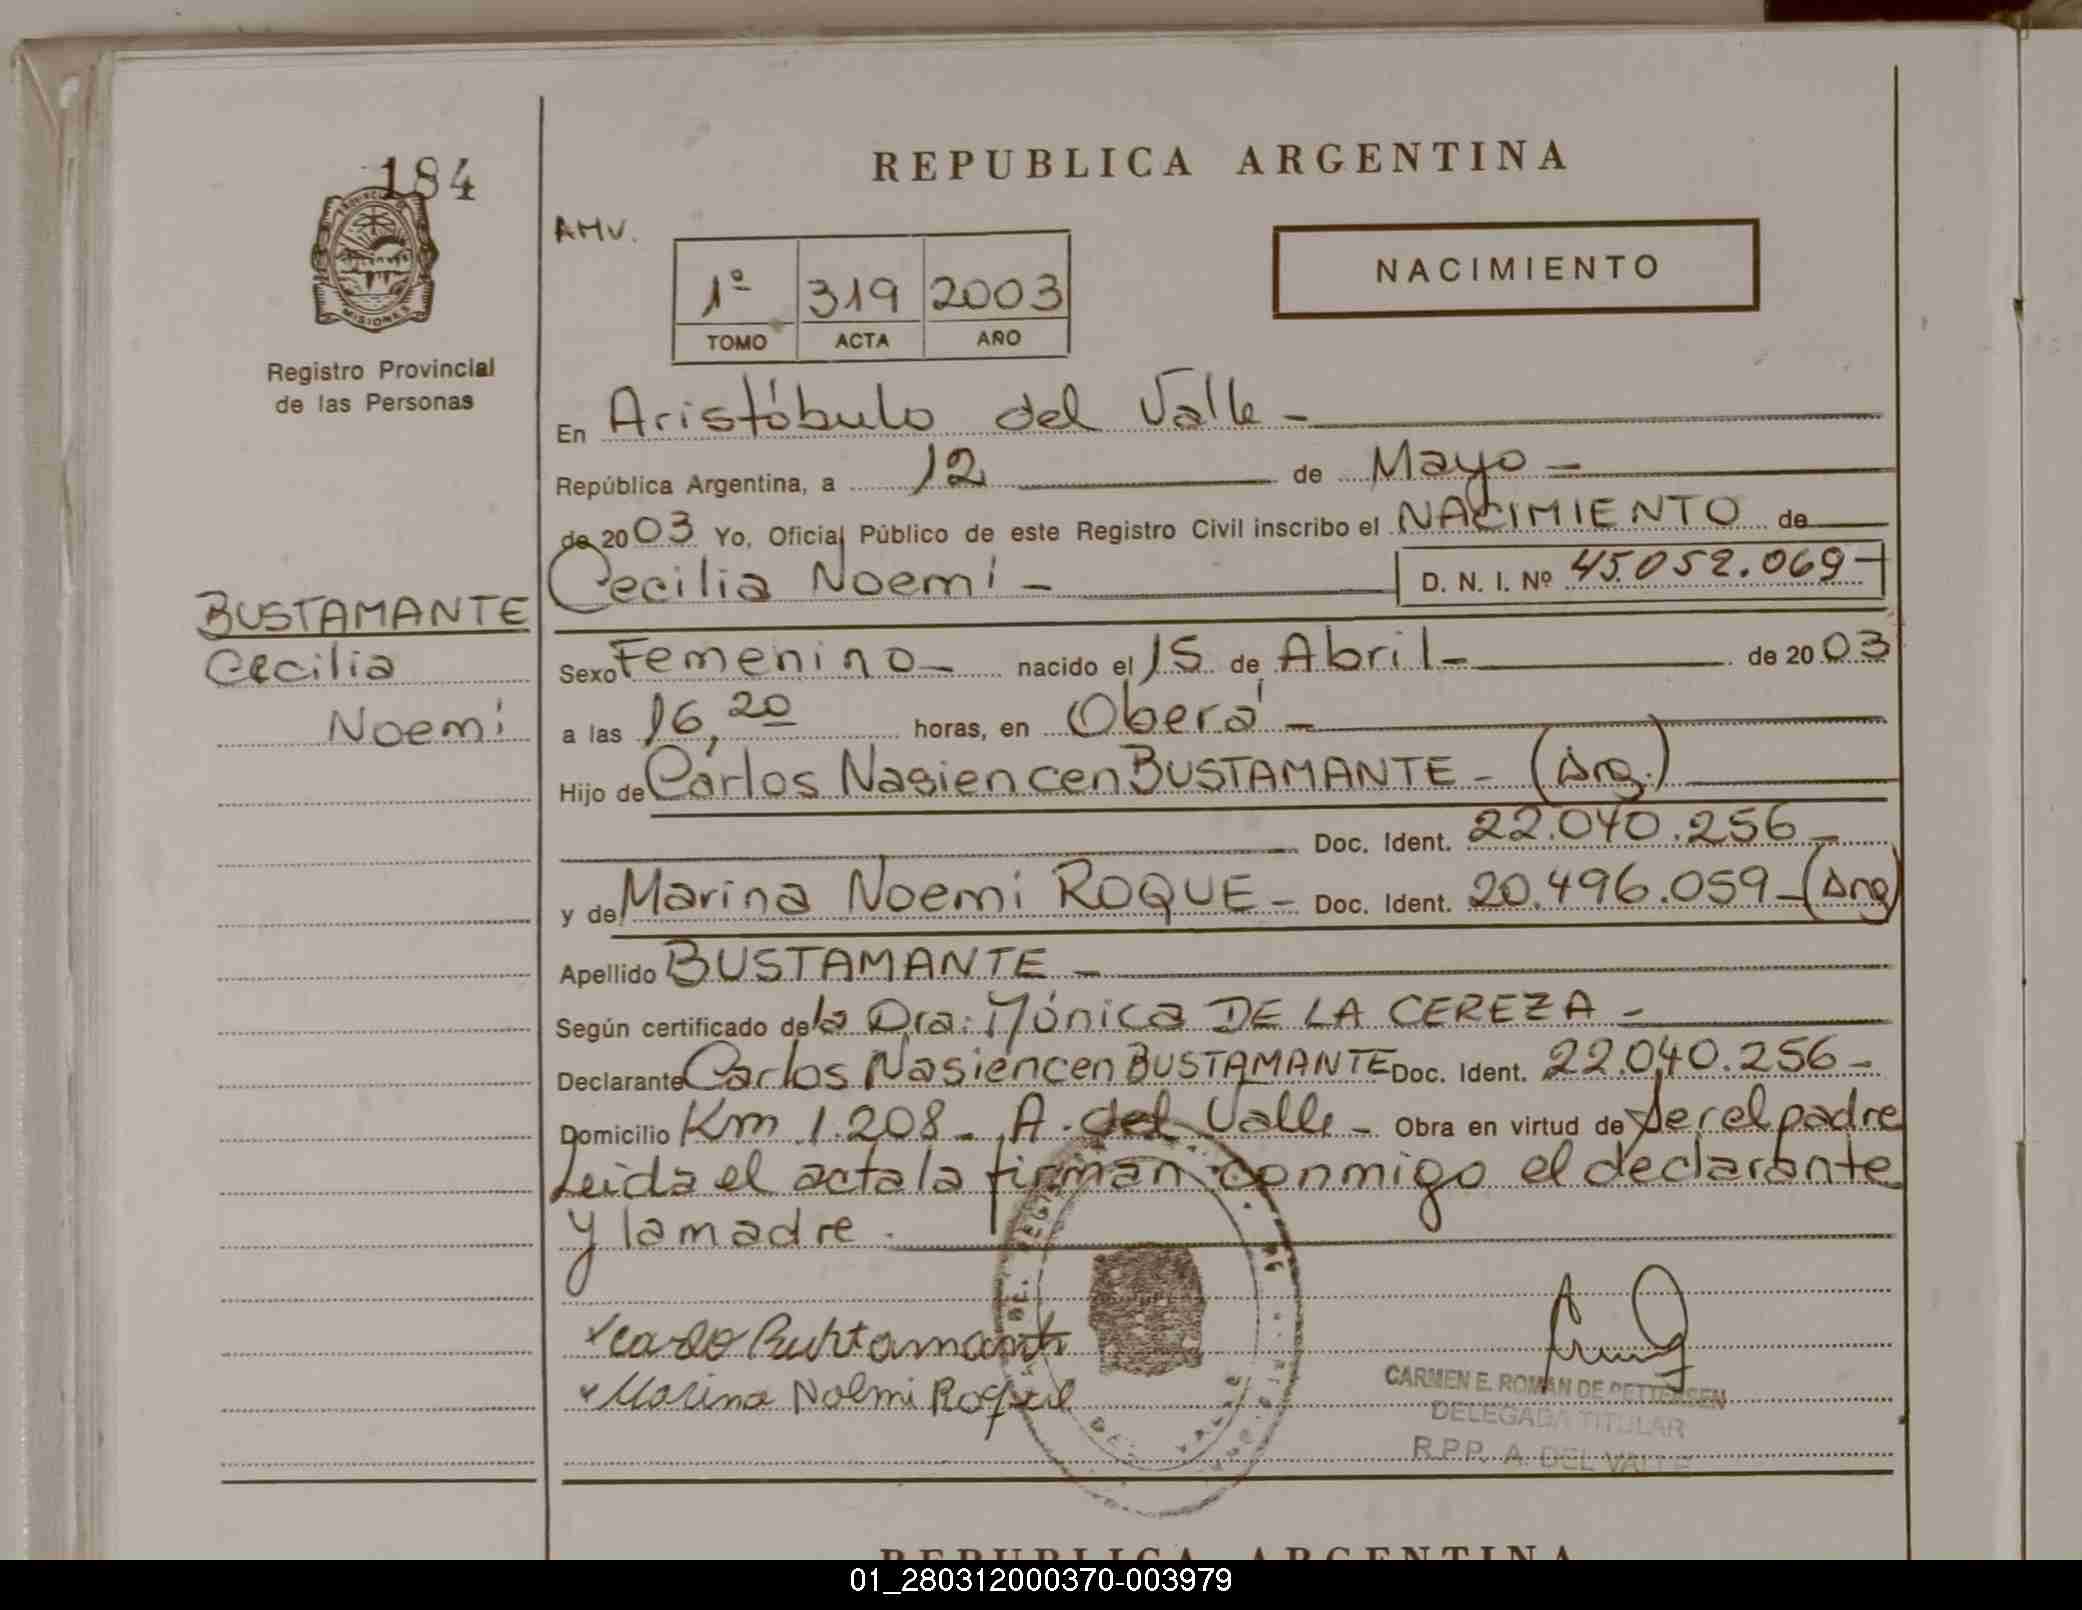 184
PROVINCIA DE
MISIONES
Registro Provincial
de las Personas
REPUBLICA ARGENTINA
AMV.
1º 319 2003
TOMO ACTA AÑO
NACIMIENTO
En Aristóbulo del Valle -
República Argentina, a 12 de Mayo -
de 2003 Yo, Oficial Público de este Registro Civil inscribo el NACIMIENTO de
Cecilia Noemí - D. N. I. Nº 45.052.069-
BUSTAMANTE
Cecilia
Noemí
Sexo Femenino - nacido el 15 de Abril - de 2003
a las 16,20 horas, en Oberá -
Hijo de Carlos Nasiencen BUSTAMANTE - (Arg.)
Doc. Ident. 22.040.256 -
y de Marina Noemi ROQUE - Doc. Ident. 20.496.059 - (Arg)
Apellido BUSTAMANTE -
Según certificado de la Dra. Mónica DE LA CEREZA -
Declarante Carlos Nasiencen BUSTAMANTE Doc. Ident. 22.040.256 -
Domicilio Km 1.208 - A. del Valle - Obra en virtud de ser el padre
Leida el acta la firman conmigo el declarante
y la madre.
Marina Noemi Roque
CARMEN E. ROMAN DE PETTERSEN
DELEGADA TITULAR
R.P.P. A. DEL VALLE
REPUBLICA ARGENTINA
01_280312000370-003979